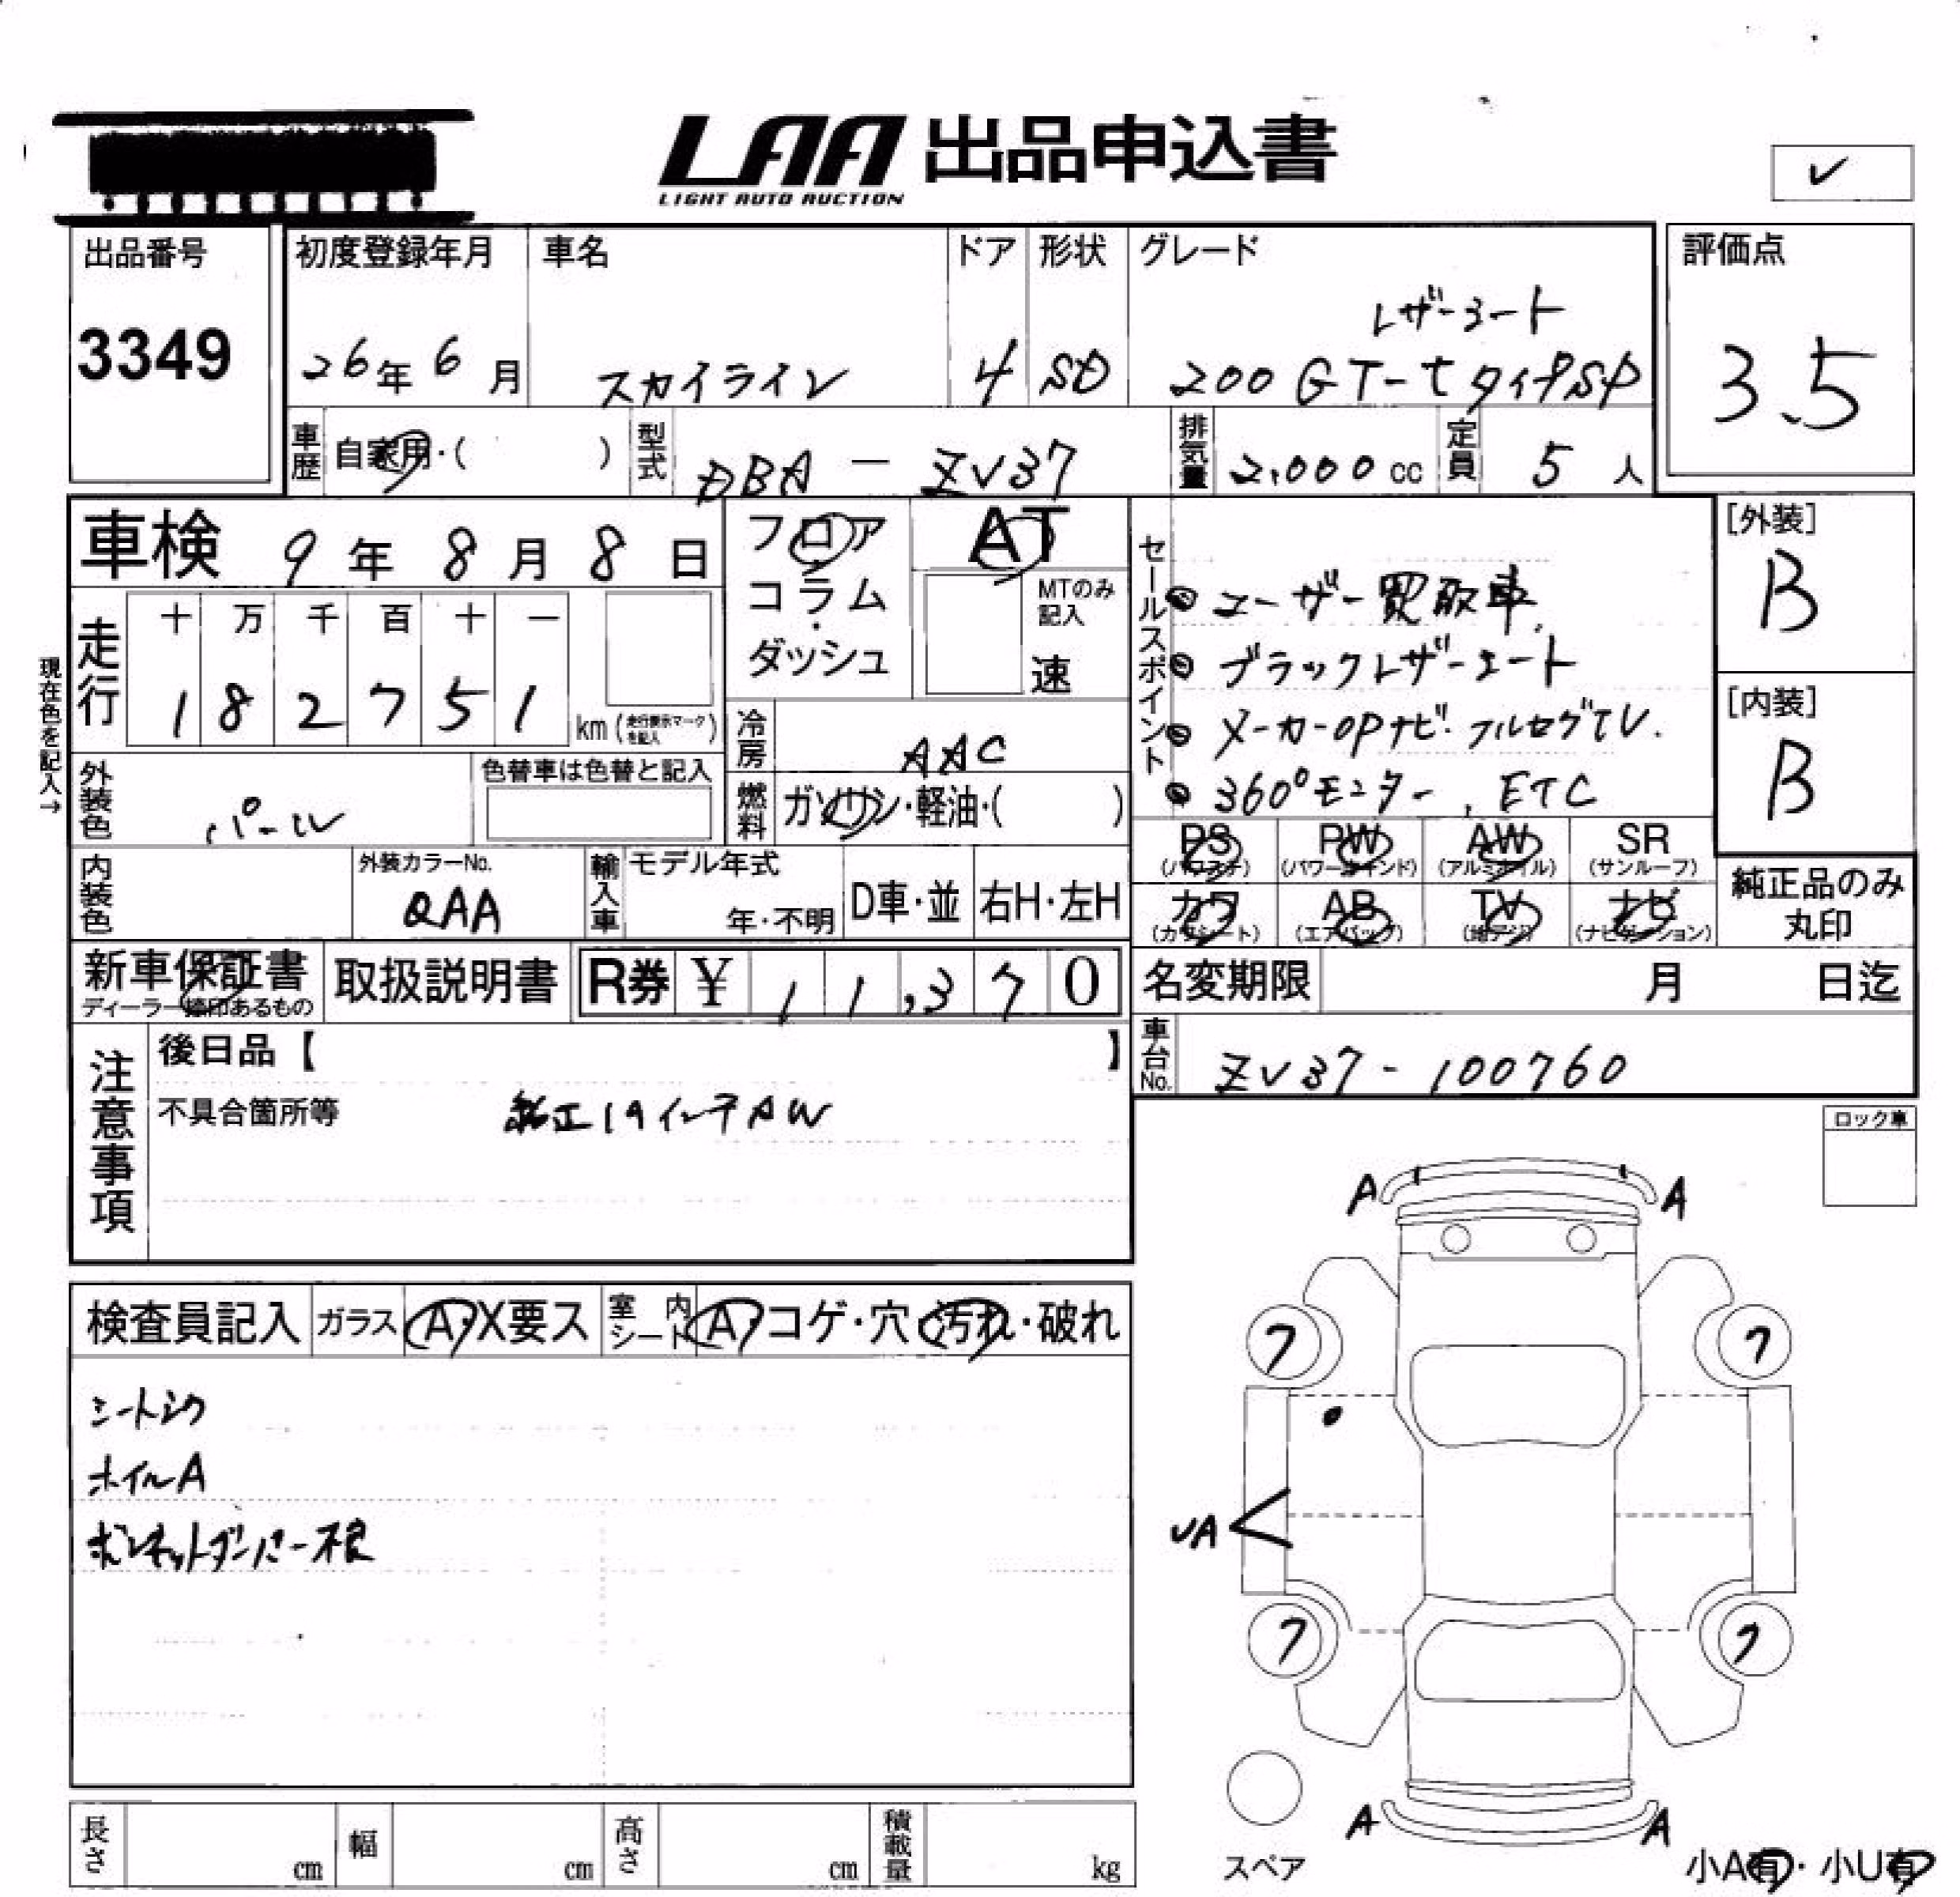 LAA 出品申込書
LIGHT AUTO AUCTION
✓
出品番号
3349
初度登録年月
26年6月
車名
スカイライン
ドア
4
形状
SD
グレード
レザーシート
200GT-tタイプSP
評価点
3.5
車歴 自家用・( )
型式 DBA-ZV37
排気量 2,000cc
定員 5人
車検 9年8月8日
フロア・コラム・ダッシュ
AT
MTのみ記入
速
セールスポイント
ユーザー買取車
ブラックレザーシート
メーカーOPナビ・フルセグTV.
360°モニター, ETC
[外装]
B
[内装]
B
現在色を記入→
走行
十 万 千 百 十 一
1 8 2 7 5 1 km (走行表示マークを記入)
冷房 AAC
外装色 パール
色替車は色替と記入
燃料 ガソリン・軽油・( )
PS (パワステ)
PW (パワーウインド)
AW (アルミホイル)
SR (サンルーフ)
カワ (カワシート)
AB (エアバック)
TV (地デジ)
ナビ (ナビゲーション)
純正品のみ丸印
内装色
外装カラーNo.
QAA
輸入車 モデル年式
年・不明
D車・並
右H・左H
新車保証書
ディーラー捺印あるもの
取扱説明書
R券 ¥ 11,370
名変期限 月 日迄
車台No. ZV37-100760
注意事項
後日品【 】
不具合箇所等 純正19インチAW
ロック車
検査員記入
ガラス A・X要ス
室内シート A・コゲ・穴・汚れ・破れ
シートシワ
ホイルA
ボンネットダンパー不良
A A
フ フ
UA
フ フ
A A
スペア
小A有・小U有
長さ cm
幅 cm
高さ cm
積載量 kg